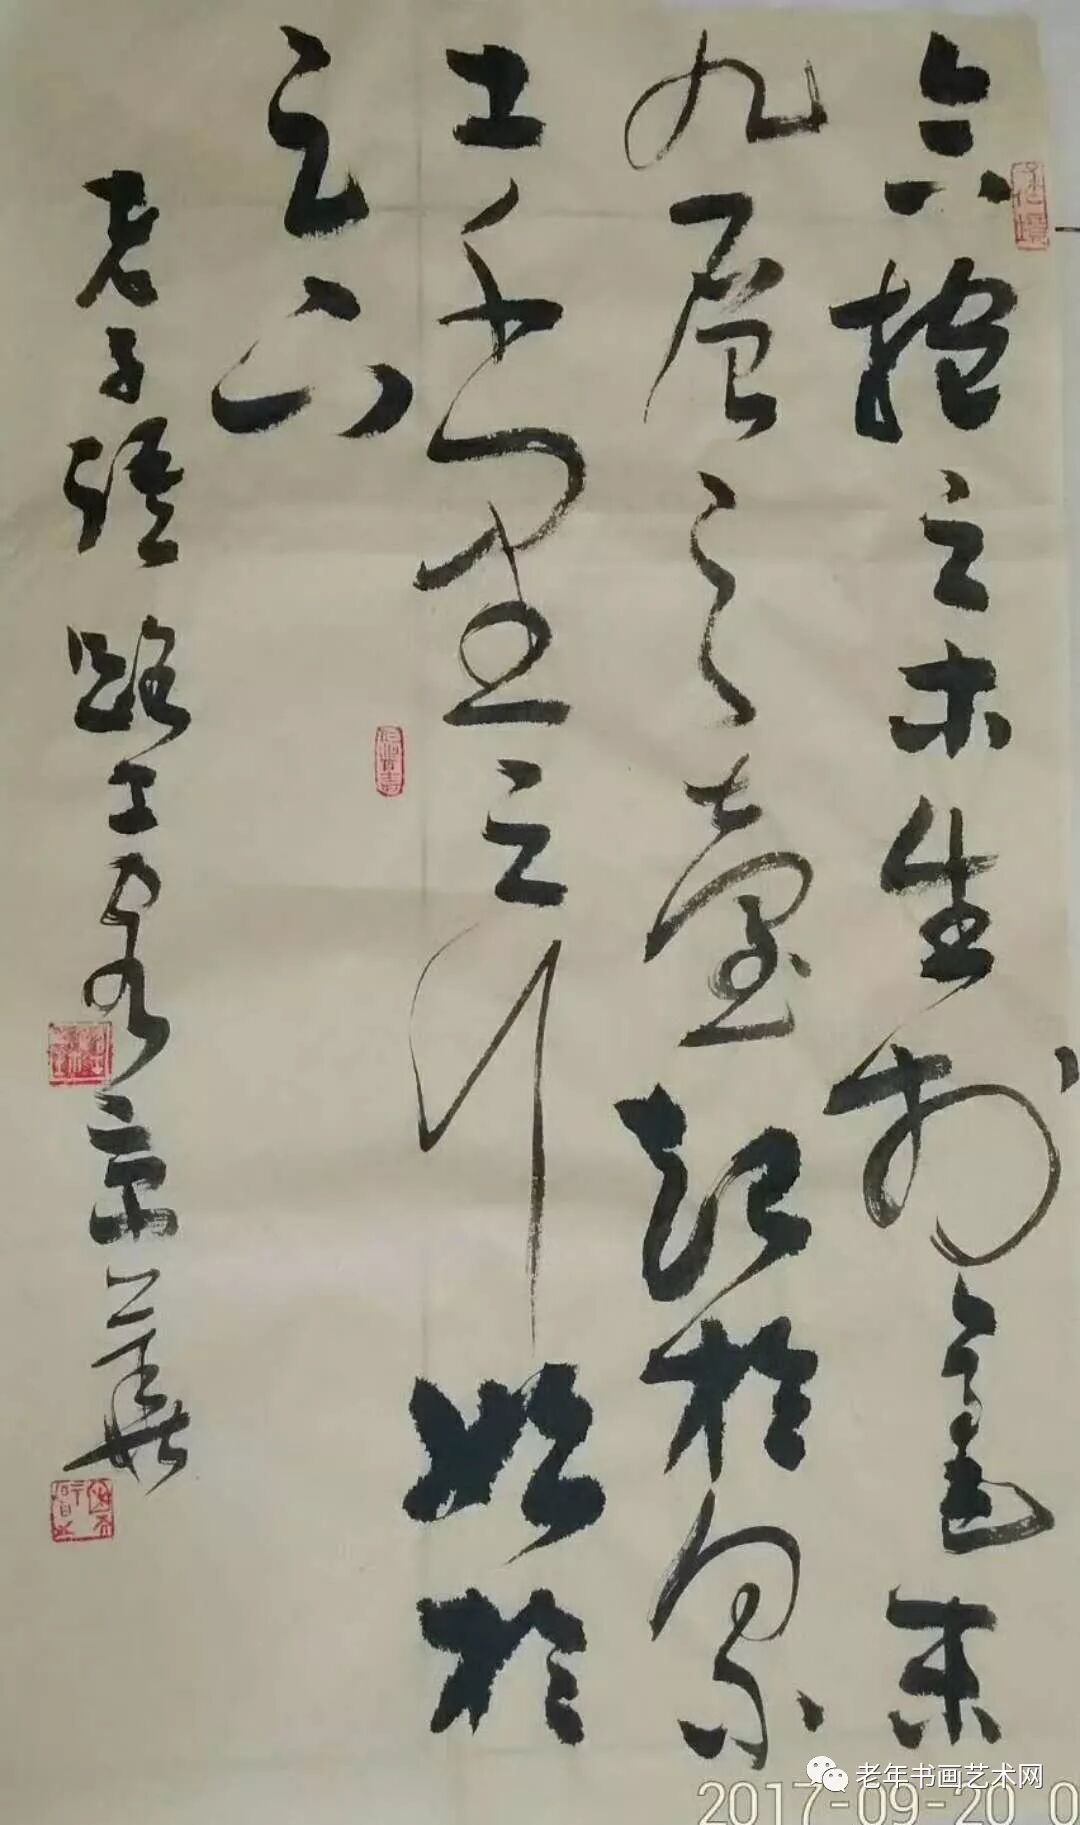 合抱之木生於毫末
九層之臺起於累
土千里之行始於
足下
老子語 路 京華
老年书画艺术网
2017-09-20 0